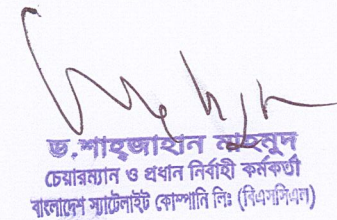 ড. শাহ্‌জাহান মাহমুদ
চেয়ারম্যান ও প্রধান নির্বাহী কর্মকর্তা
বাংলাদেশ স্যাটেলাইট কোম্পানি লিঃ (বিএসসিএল)